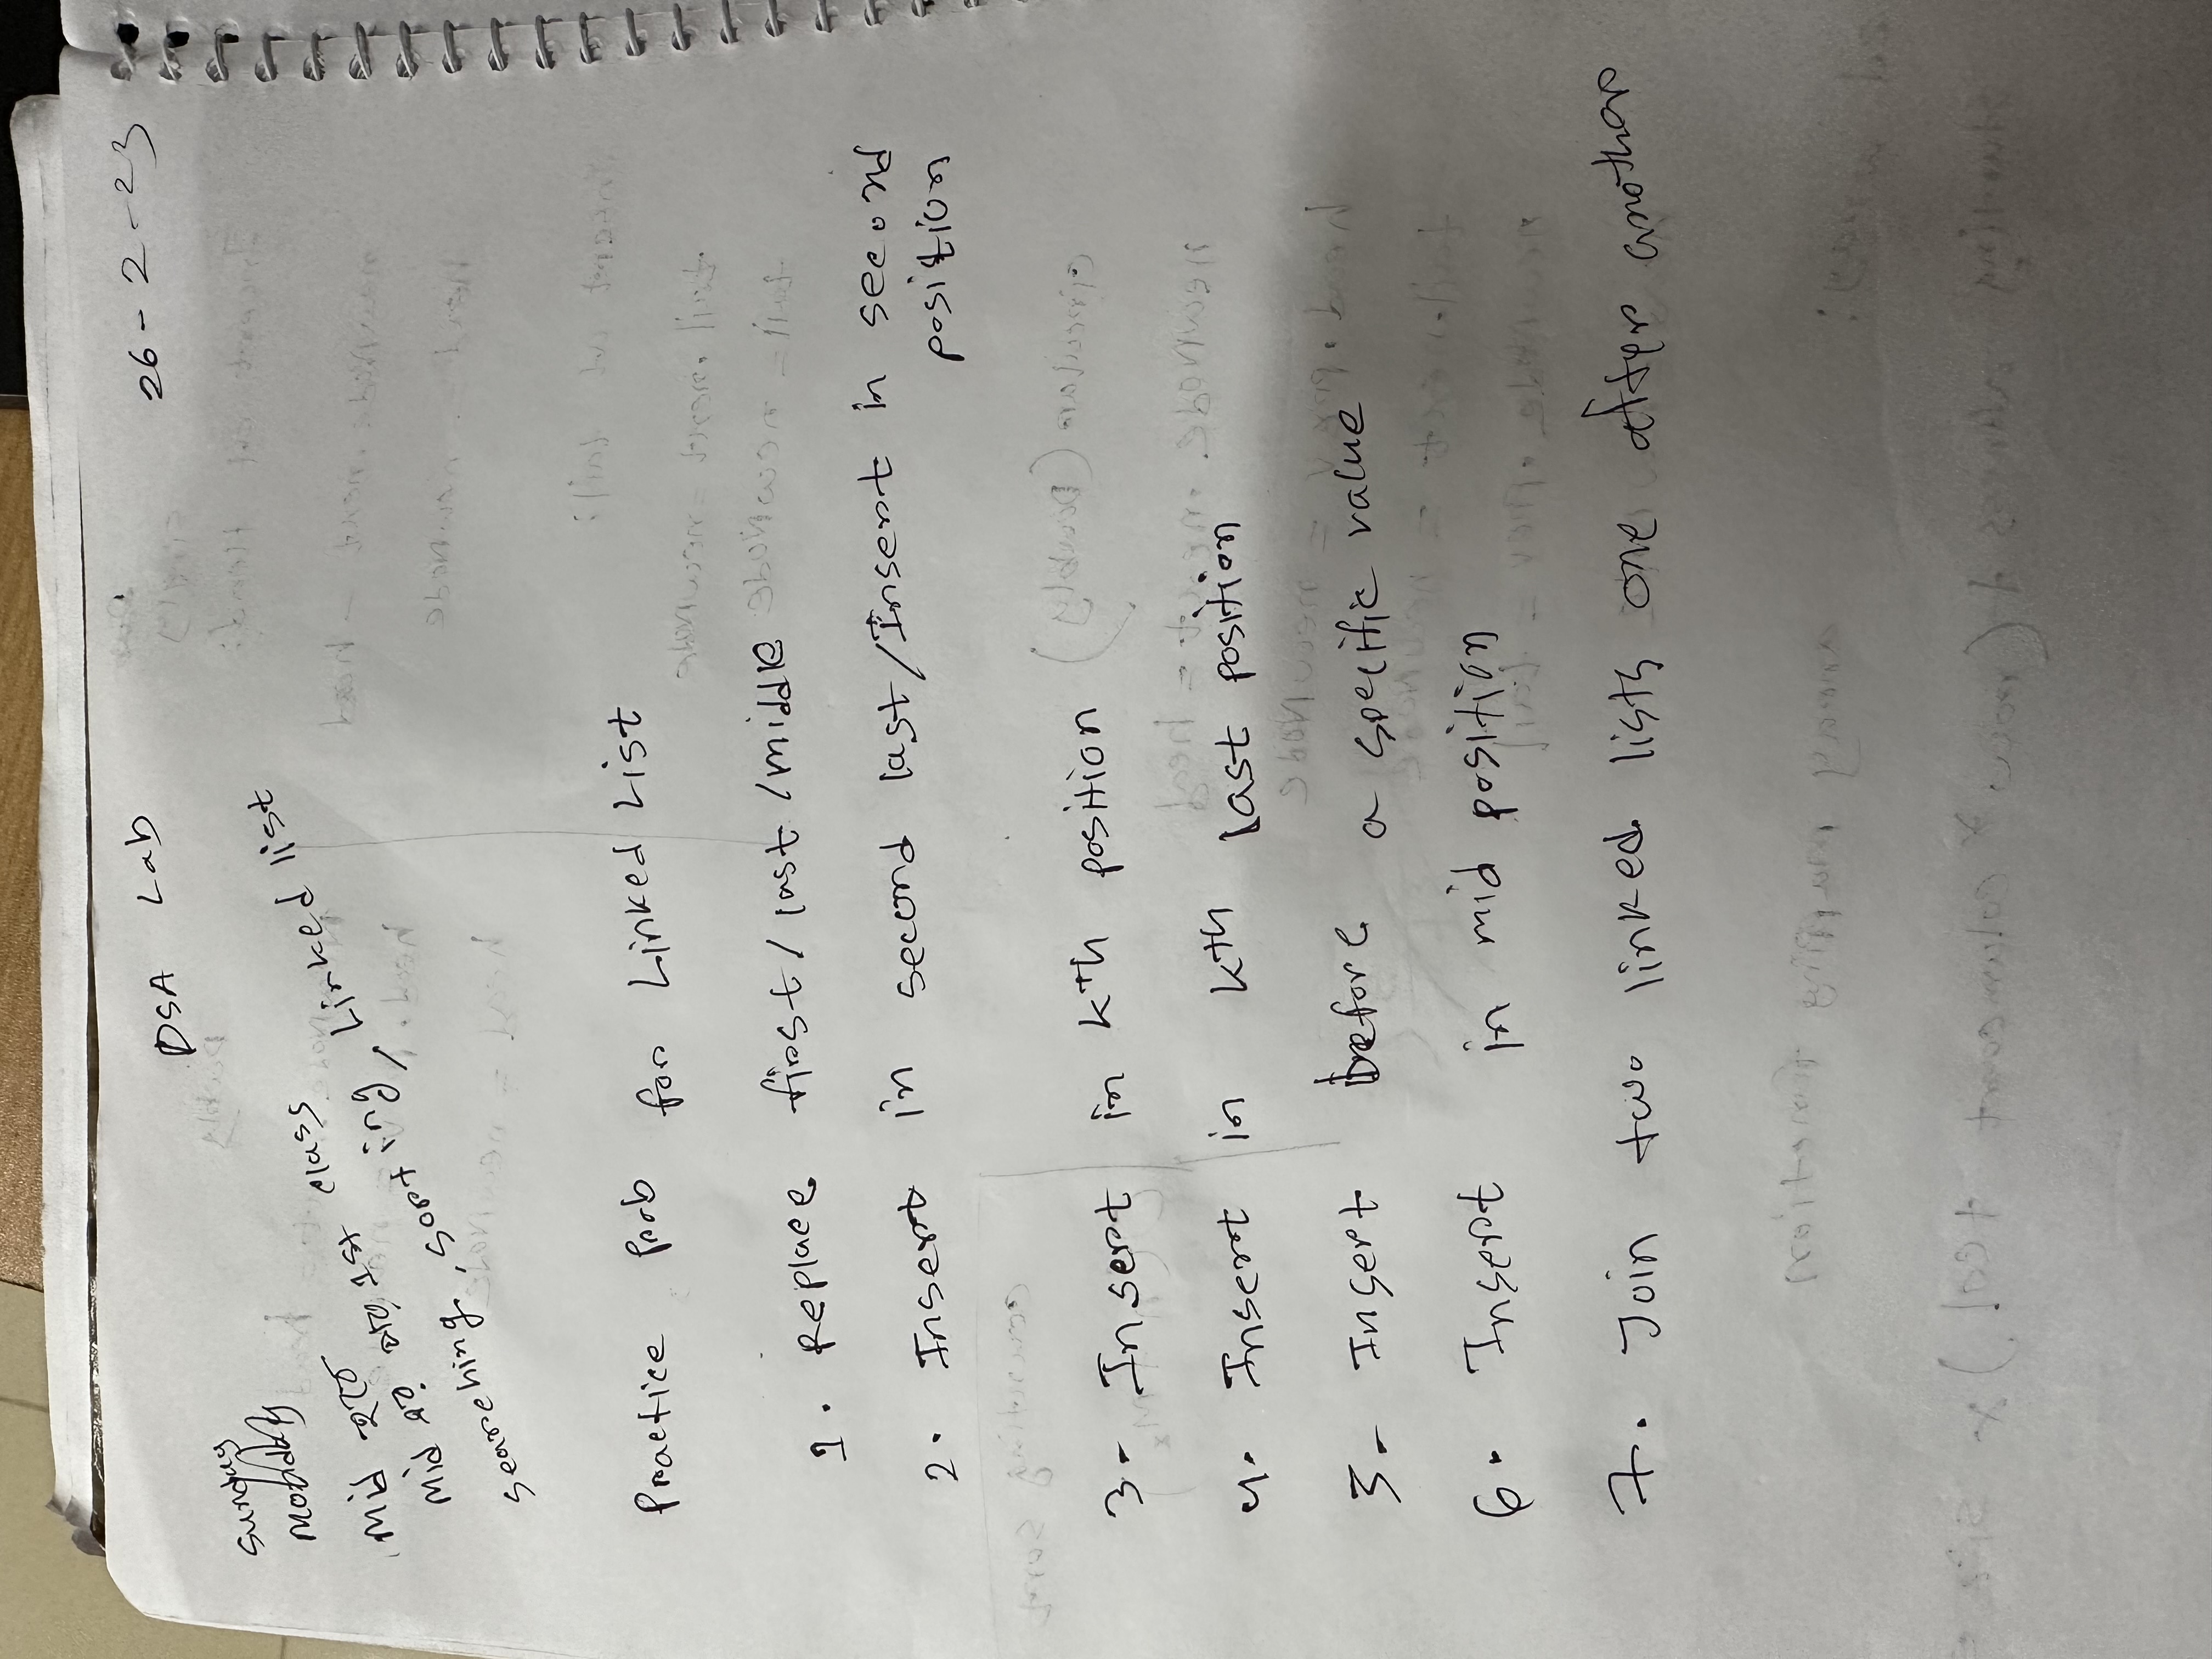 DSA Lab
26-2-23
Sunday
Monday
Mid হবে
Mid এর পরে 1st class
searching, sorting, Linked list
Practice Prob for Linked List
1. Replace first/last/middle
2. Insert in second last/Insert in second
position
3- Insert in kth position
4. Insert in kth last position
5- Insert before a specific value
6. Insert in mid position
7. Join two linked lists one after another